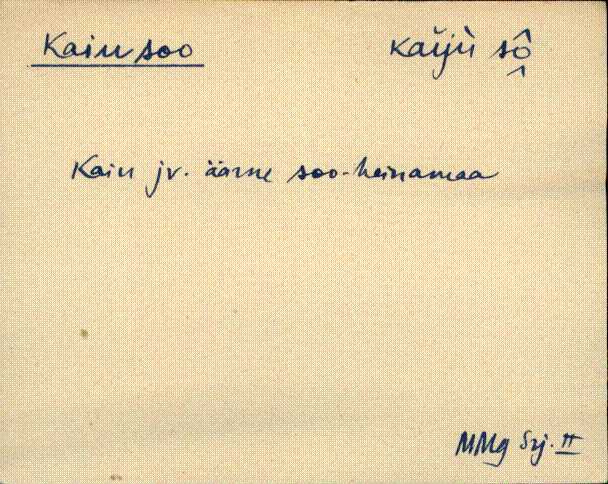 Kaiu soo kaijù sô
Kaiu jv. äärne soo-heinamaa
MMg Srj. II